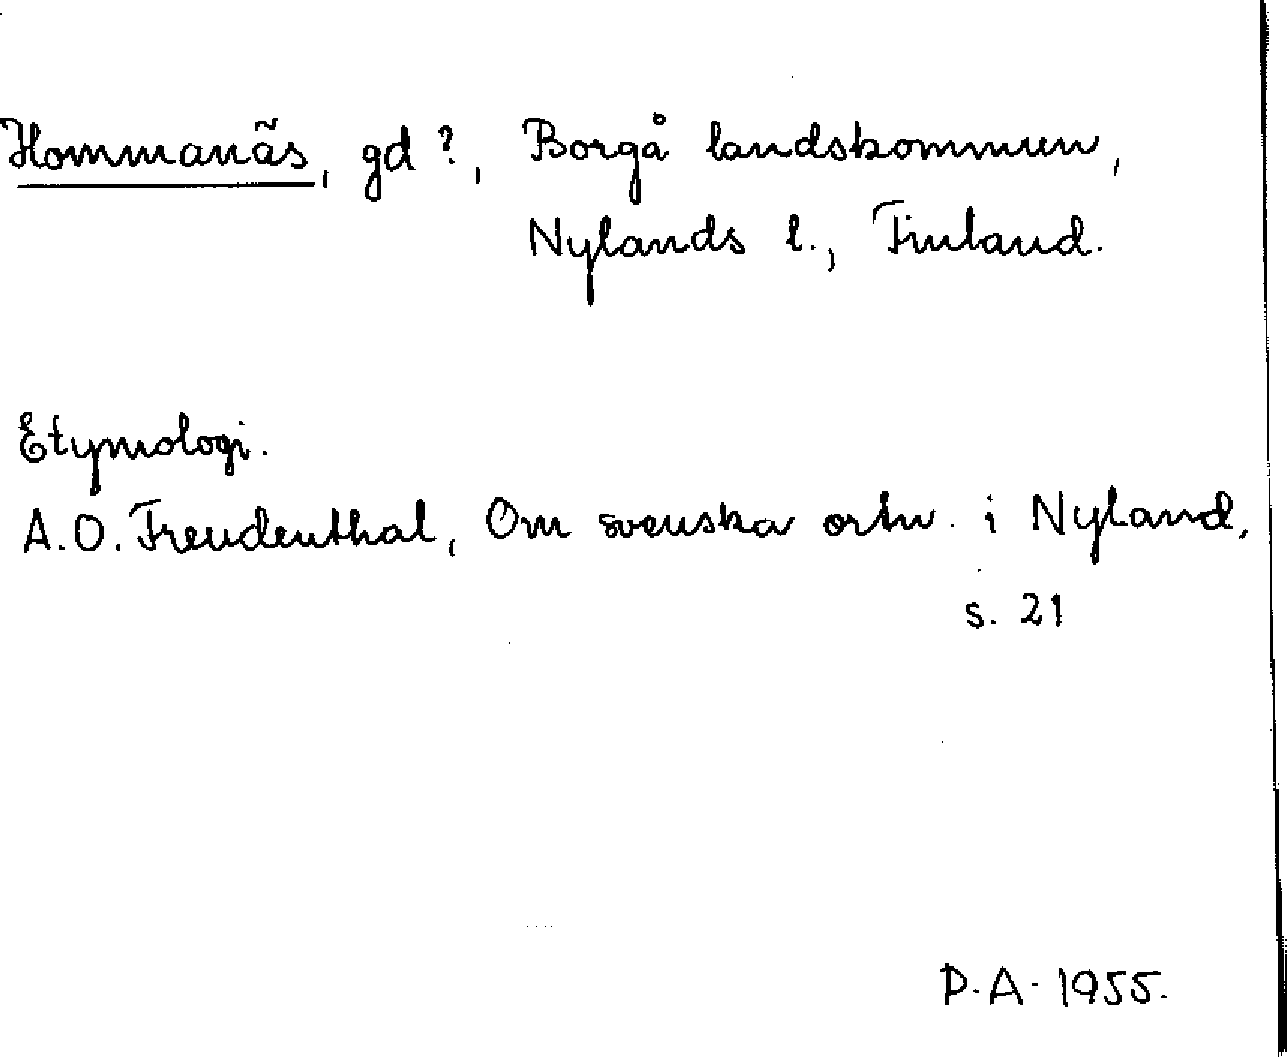 Hommanäs, gd ?, Borgå landskommun,
Nylands l., Finland.
Etymologi.
A.O. Freudenthal, Om svenska ortn. i Nyland,
s. 21
P.A. 1955.